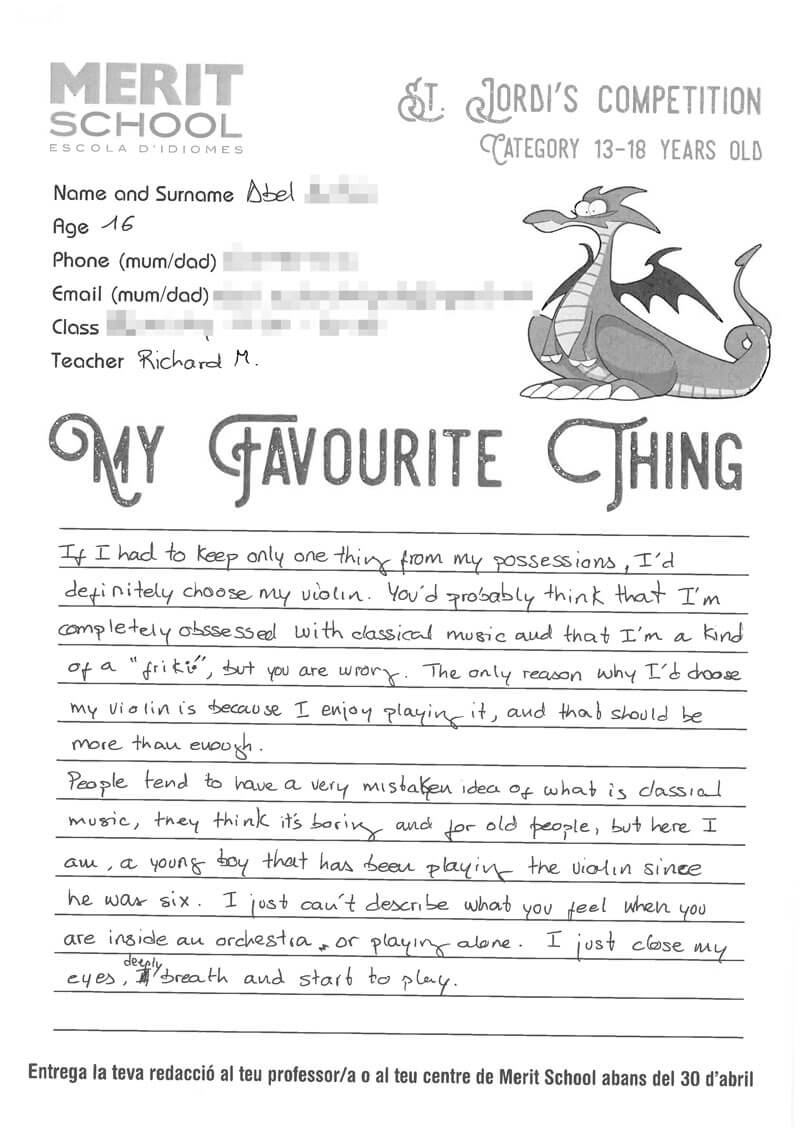 MERIT
SCHOOL
ESCOLA D'IDIOMES
St. Jordi's Competition
Category 13-18 years old
Name and Surname Abel
Age 16
Phone (mum/dad)
Email (mum/dad)
Class
Teacher Richard M.
My Favourite Thing
If I had to keep only one thing from my possessions, I'd
definitely choose my violin. You'd probably think that I'm
completely obssessed with classical music and that I'm a kind
of a "friki", but you are wrong. The only reason why I'd choose
my violin is because I enjoy playing it, and that should be
more than enough.
People tend to have a very mistaken idea of what is classical
music, they think it's boring and for old people, but here I
am, a young boy that has been playing the violin since
he was six. I just can't describe what you feel when you
are inside an orchestra, or playing alone. I just close my
eyes, deeply breath and start to play.
Entrega la teva redacció al teu professor/a o al teu centre de Merit School abans del 30 d'abril